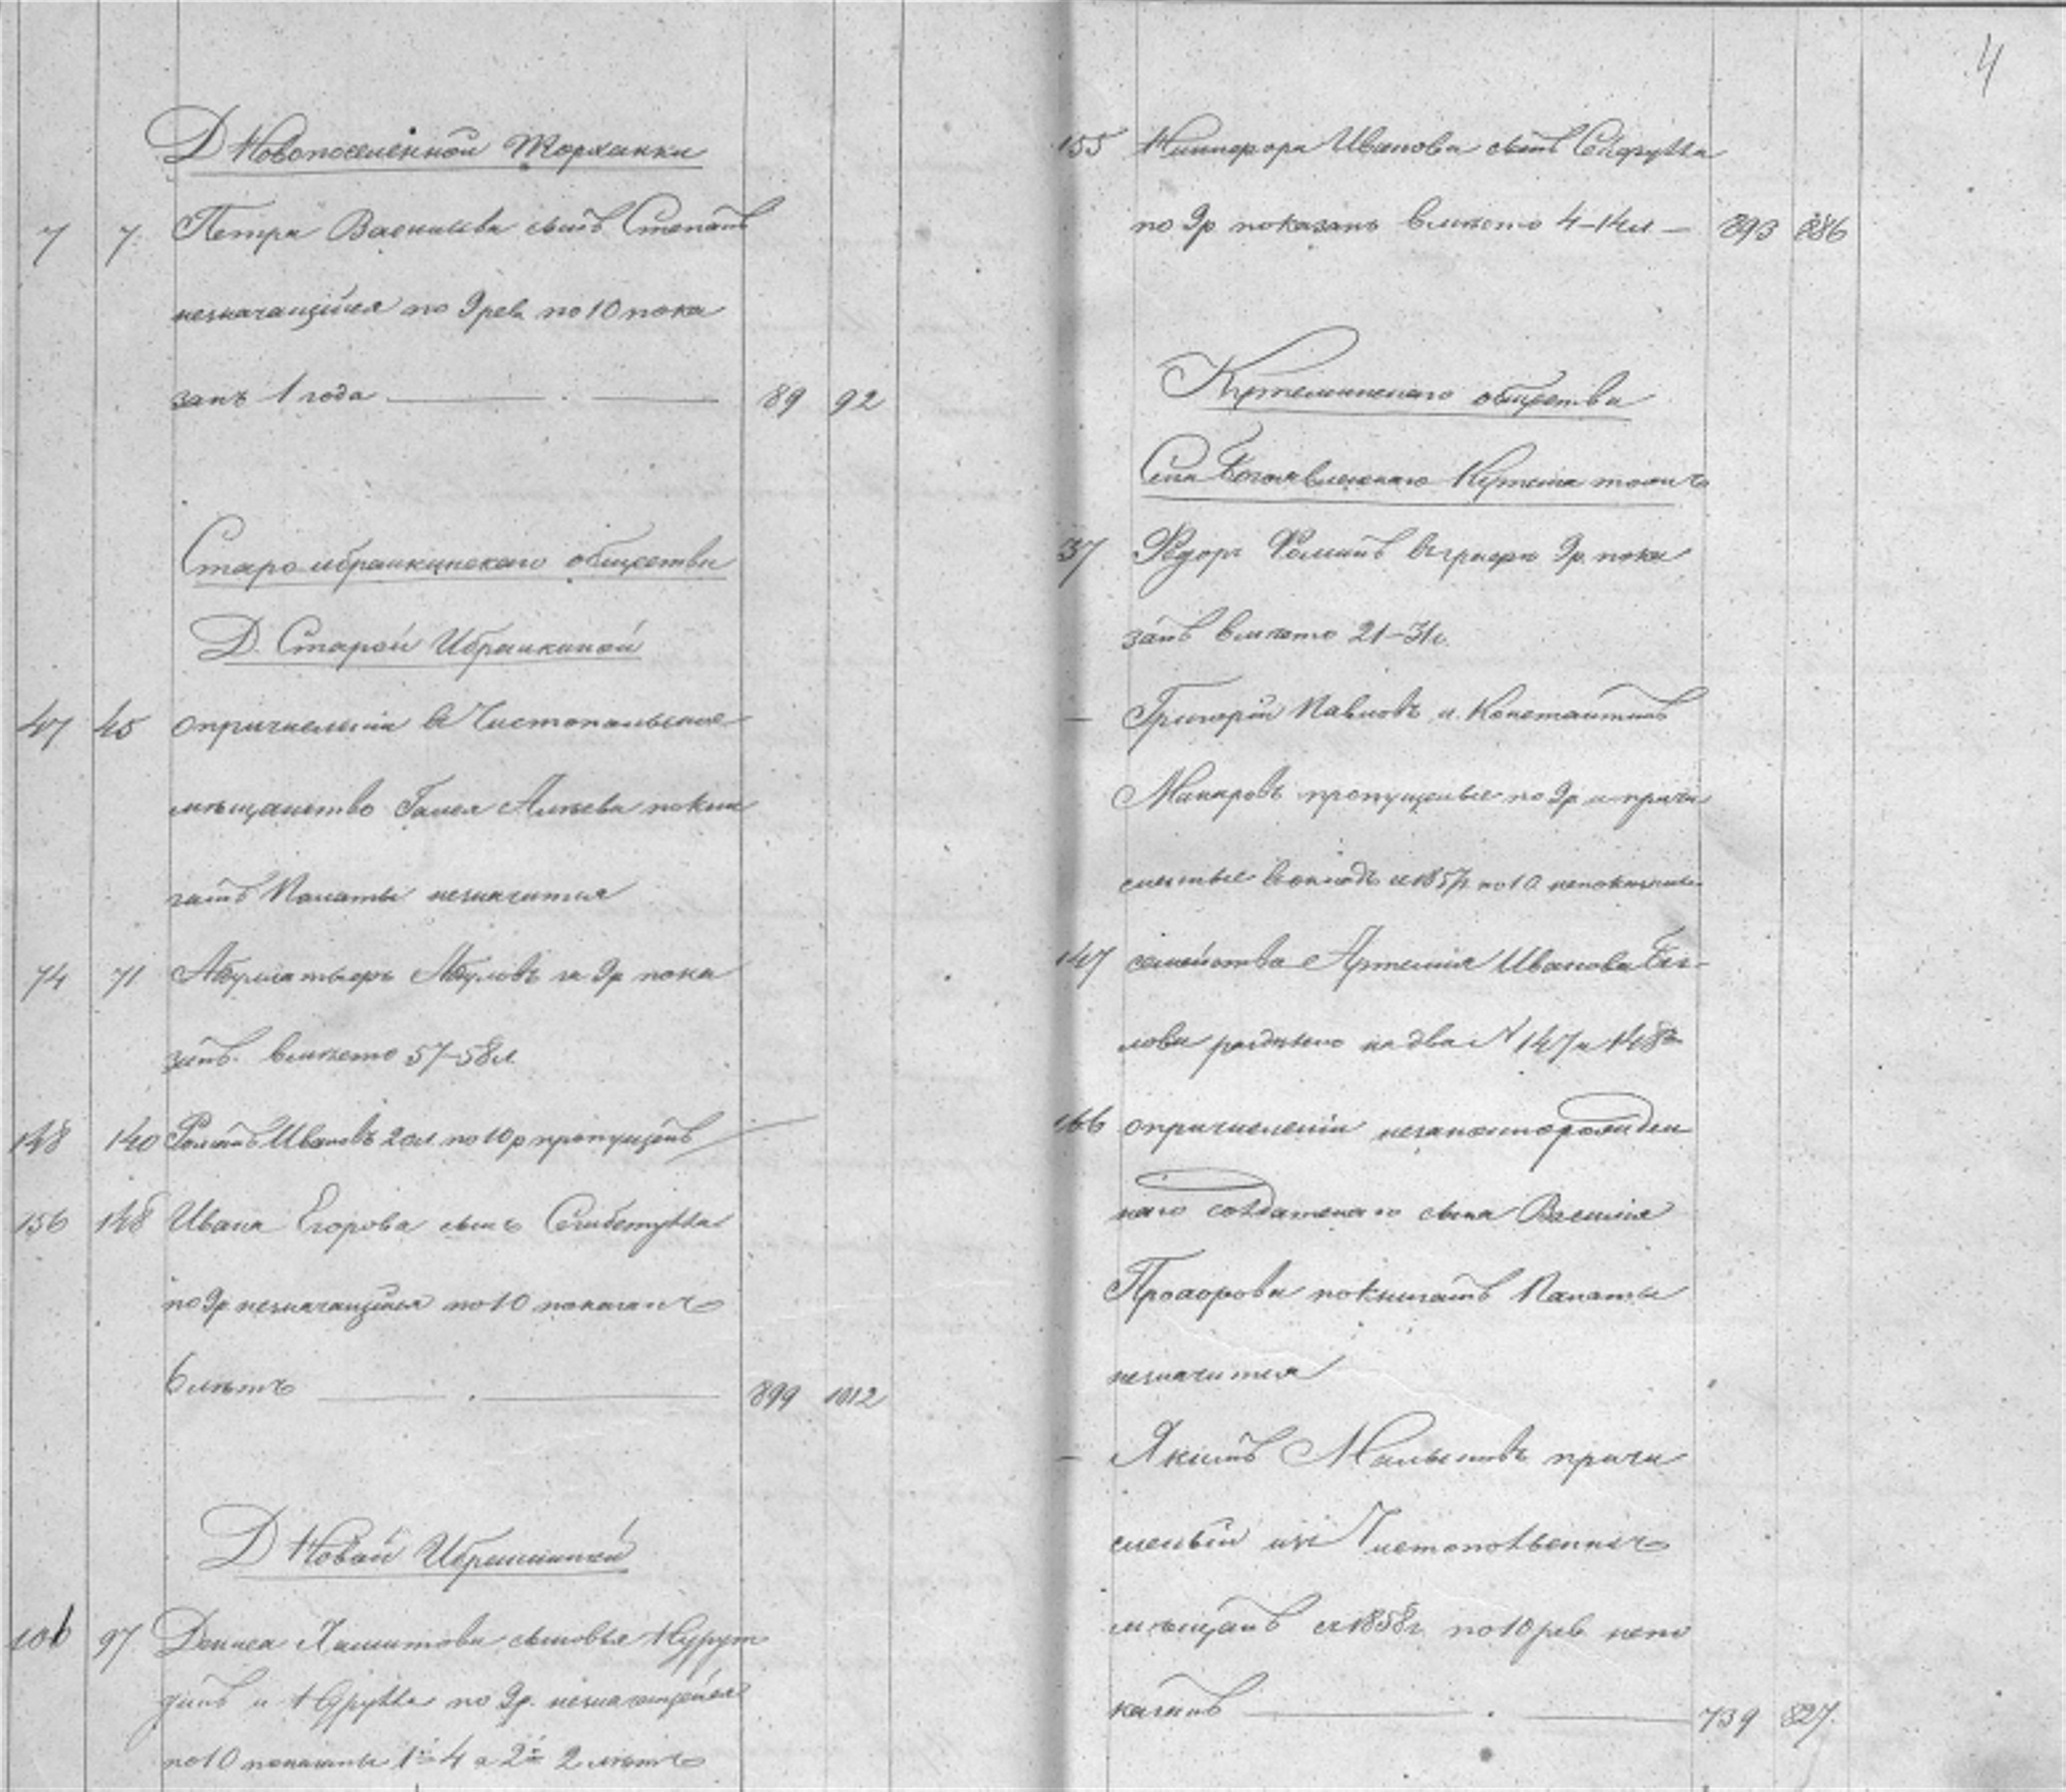 Д Новопоселенной Тарханки
7 7 Петра Васильева сынъ Степанъ
незначащийся по 9 рев. по 10 пока
занъ 1 года — . — 89 92
Староибраикинскаго общества
Д. Старой Ибраикиной
47 45 опричислении в Чистопольское
мѣщанство Галея Алѣева
Палаты незначится
74 71 Абдулов по 9р пока
занъ вмѣсто 57–58л
148 140 Романъ Ивановъ 20л. по 10р пропущенъ
156 148 Ивана Егорова сынъ
по 9р незначащийся по 10 показанъ
6 лѣтъ — . — 899 1012
Д Новой Ибраикиной
106 97 Дениса сыновья Нурут
динъ и по 9р. незначащийся
по 10 показаны 1й 4 а 2й 2 лѣтъ
4
155 Никифора Иванова сынъ
по 9р показанъ вмѣсто 4–14л — 893 886
Кутеминскаго общества
Села Богоявленскаго Кутема тожъ
37 Федоръ Фоминъ 9р. пока
занъ вмѣсто 21–31г.
— Григорий Павловъ и Константинъ
Макаровъ пропущенные по 9р и причи
сленные в окладъ с 1857г по 10 непоказаны
147 семейство Артемия Иванова Бѣ-
лова раздѣлено на два № 147 и 148й
166 опричислении незаконнорожден
наго солдатскаго сына Василия
Прохорова Палаты
незначится
— Якимъ причи
сленный изъ Чистопольскихъ
мѣщанъ с 1858г. по 10 рев. непо
казанъ — . — 739 827.